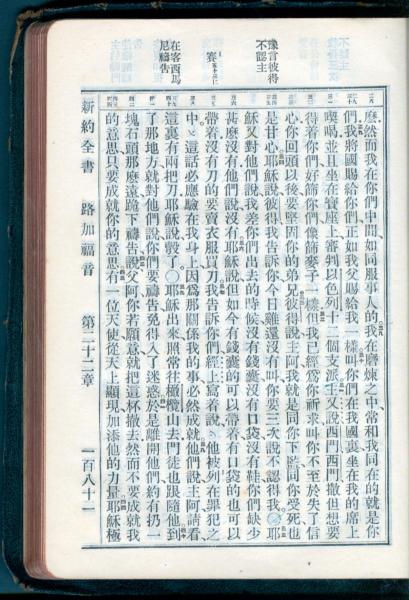 豫言彼得
不認主
賽五十三〇十二
在客西馬
尼禱告
麽然而我在你們中間如同服事人的我在磨煉之中常和我同在的就是你
們我將國賜給你們正如我父賜給我一樣叫你們在我國裏坐在我的席上
喫喝並且坐在寶座上審判以色列十二個支派主又說西門西門撒但想要
得着你們好篩你們像篩麥子一樣但我已經爲你祈求叫你不至於失了信
心你回頭以後要堅固你的弟兄彼得說主阿我就是同你下監同你受死也
是甘心耶穌說彼得我告訴你今日雞還沒有叫你要三次說不認得我〇耶
穌又對他們說我差你們出去的時候沒有錢囊沒有口袋沒有鞋你們缺少
甚麽沒有他們說沒有耶穌說但如今有錢囊的可以帶着有口袋的也可以
帶着沒有刀的要賣衣服買刀我告訴你們經上寫着說他被列在罪犯之
中這話必應驗在我身上因爲那關係我的事必然成就他們說主阿請看
這裏有兩把刀耶穌說彀了〇耶穌出來照常往橄欖山去門徒也跟隨他到
了那地方就對他們說你們要禱告免得入了迷惑於是離開他們約有扔一
塊石頭那麽遠跪下禱告說父阿你若願意就把這杯撤去然而不要成就我
的意思只要成就你的意思有一位天使從天上顯現加添他的力量耶穌極
新約全書 路加福音 第二十二章 一百八十一